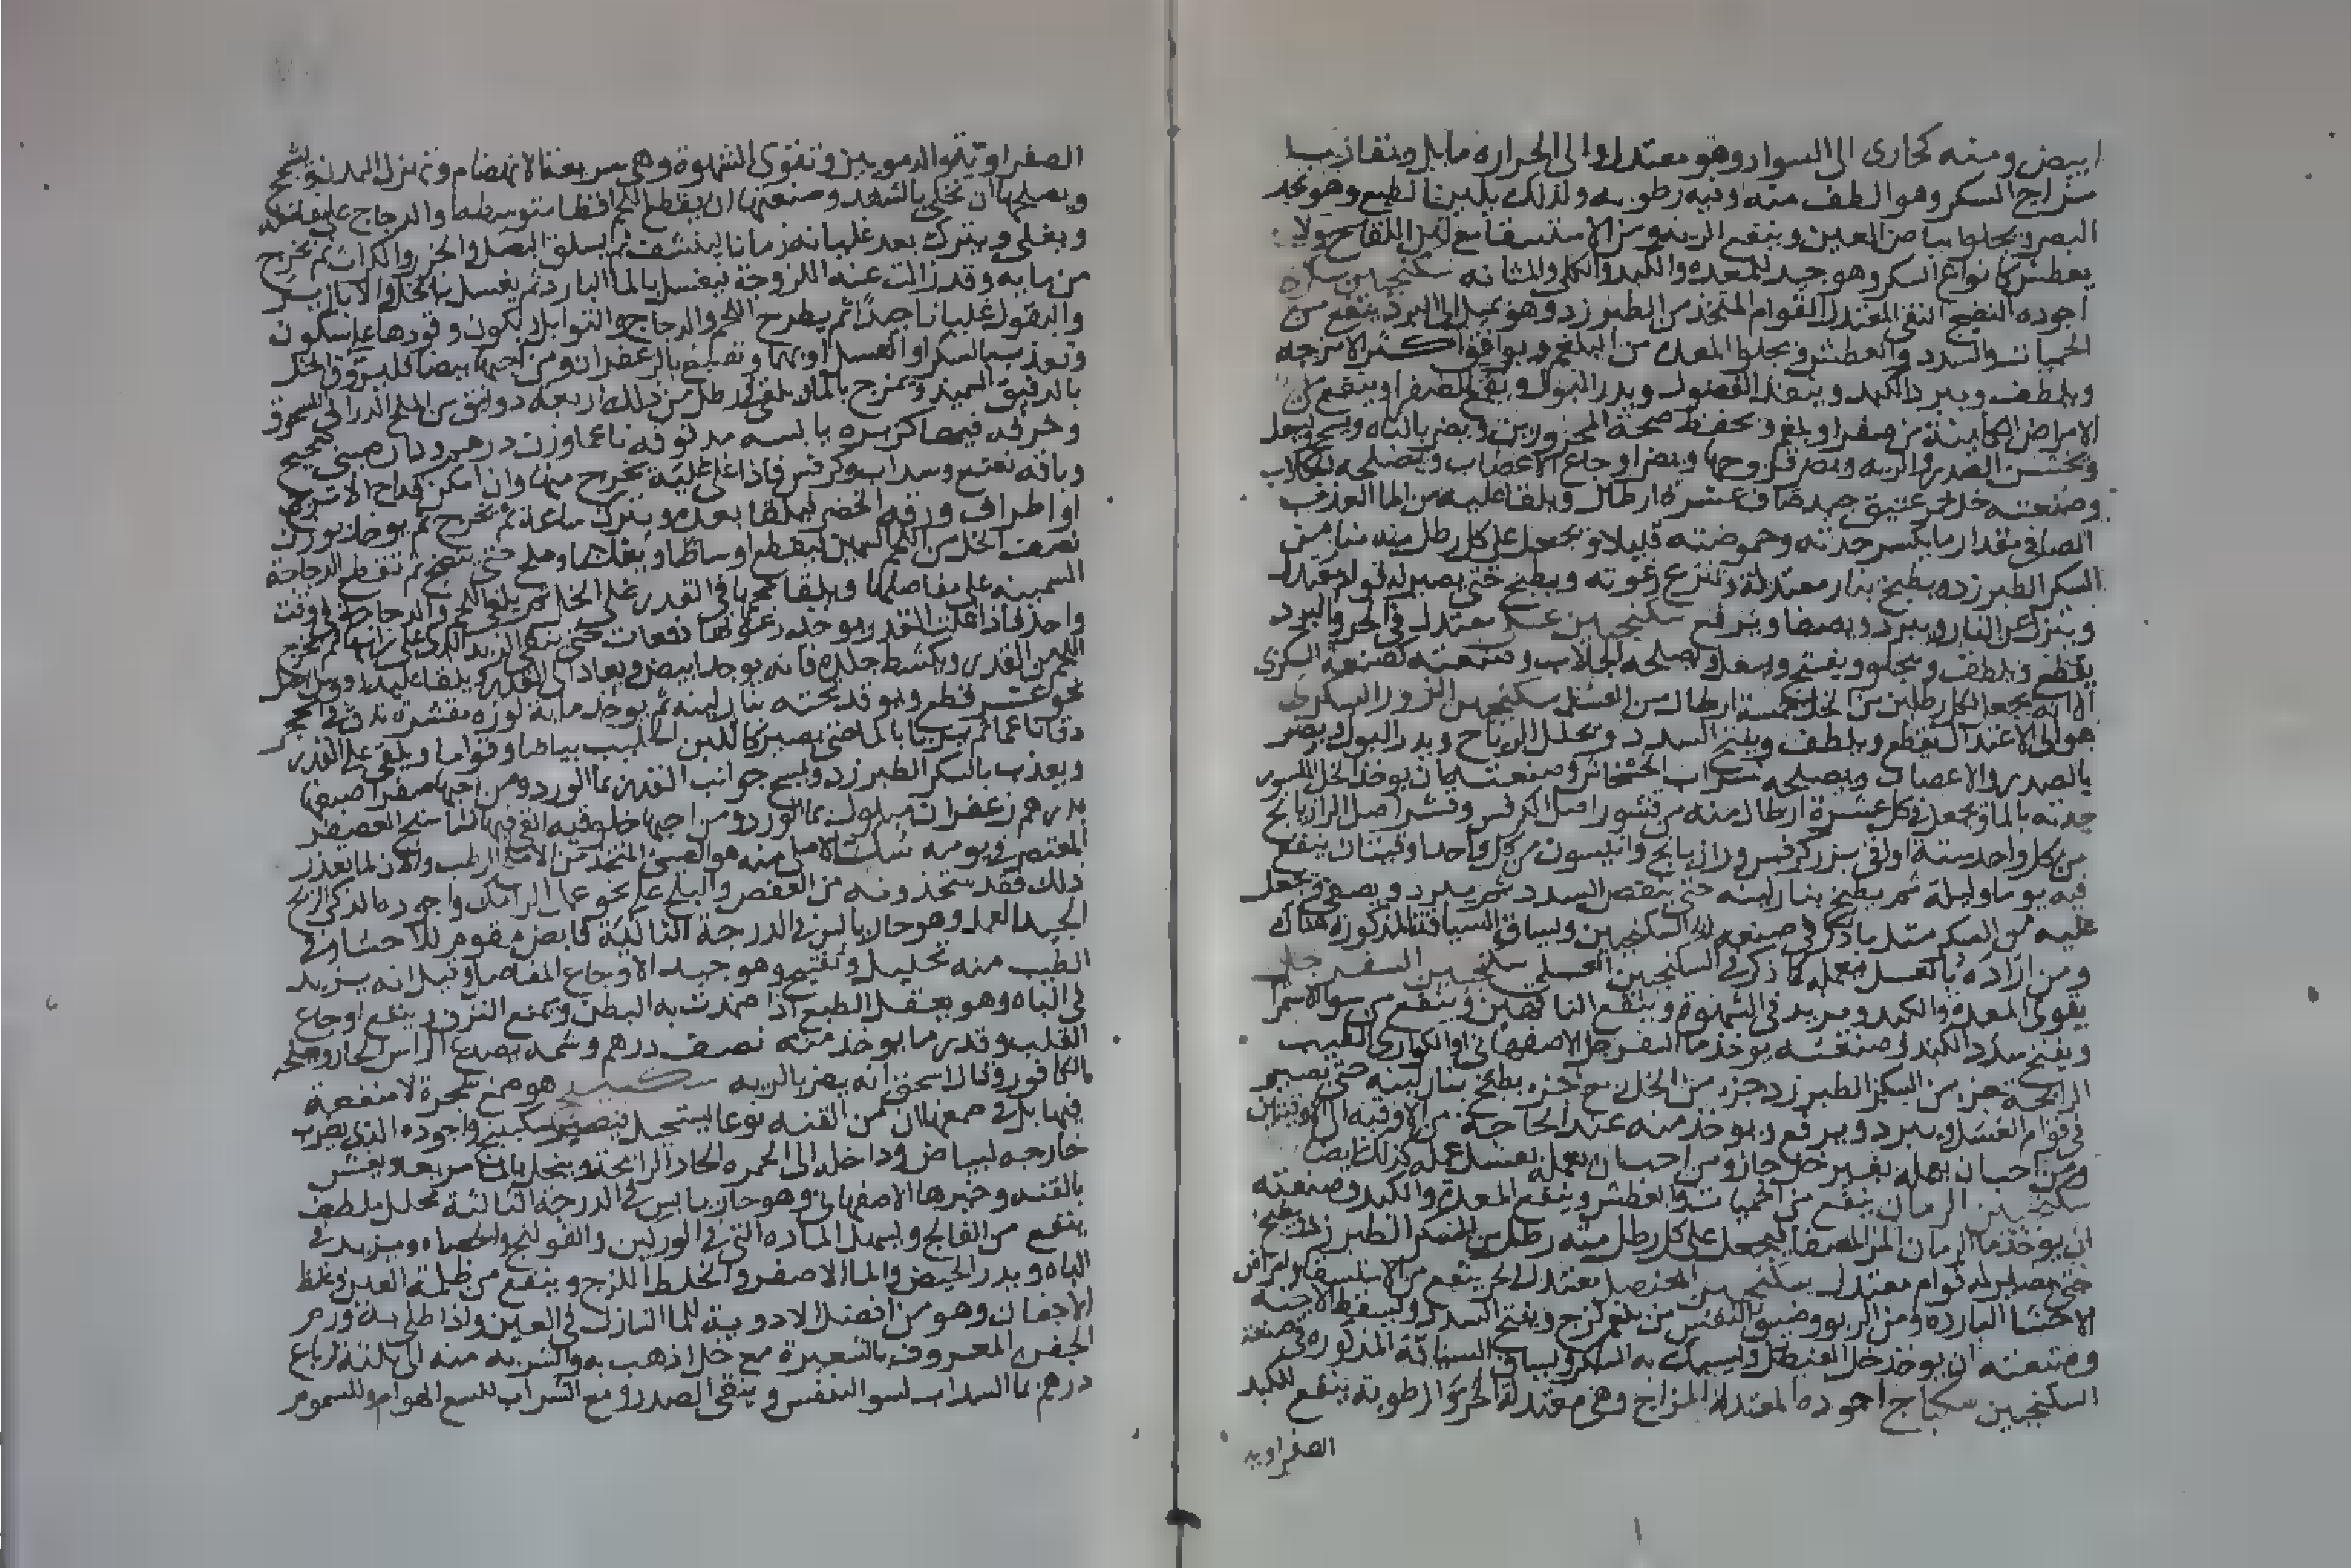 ابيض ومنه حجازى الى السواد وهو معتدل والى الحرارة مايل ويقارب
مزاج السكر وهو الطف منه وفيه رطوبه ولذلك يلين الطبع وهو يحد
البصر ويجلوا بياض العين وينفع الربو ومن الاستسقا مع لبن اللقاح ولا
يعطش كانواع السكر وهو جيد للمعده والكبد والكلى والمثانه سكنجبين سكرى
اجوده النضيج النقى المعتدل القوام المتخذ من الطبرزد وهو يميل الى البرد ينفع من
الحميات والسدد والعطش ويجلوا المعده من البلغم ويوافق اكثر الامزجه
ويلطف ويبرد الكبد وينفذ الفضول ويدر البول ويقمع الصفرا وينفع من
الامراض الكاينة من صفرا وبلغم ويحفظ صحة المحرورين ويضر بالباه ويسحج ويسعل
ويخشن الصدر والريه ويضر قروحها ويضر اوجاع الاعصاب ويصلحه الجلاب
وصنعته خل خمر عتيق جيد صاف عشرة ارطال ويلقا عليه من الما العذب
الصافى مقدار ما يكسر حدته وحموضته قليلا ويجعل على كل رطل منه منا من
السكر الطبرزد ويطبخ بنار معتدلة وتنزع رغوته ويطبخ حتى يصير له قوام معتدل
وينزل عن النار ويبرد ويصفا ويرفع سكنجبين عسلى معتدل فى الحر والبرد
يقطع ويلطف ويجلو ويفتح ويسعل ويصلحه الجلاب وصنعته كصنعة السكرى
الا انه يجعل لكل رطلين من الخل خمسة ارطال من العسل سكنجبين البزور السكرى
هو الى الاعتدال يقطع ويلطف ويفتح السدد ويحلل الرياح ويدر البول ويضر
بالصدر والاعصاب ويصلحه شراب الخشخاش وصنعته ان يوخذ الخل المكسور
حدته بالما ويجعل فى كل عشرة ارطال منه من قشور اصل الكرفس وقشر اصل الرازيانج
من كل واحد ستة اواقى بزر كرفس ورازيانج وانيسون من كل واحد اوقيتان ينقع
فيه يوما وليلة ثم يطبخ بنار لينه حتى ينقص السدس ثم يبرد ويصفى ويجعل
عليه من السكر مثل ما ذكر فى صنعه السكنجبين ويساق السياقة المذكورة هناك
ومن اراده بالعسل فيعمله كما ذكر فى السكنجبين العسلى سكنجبين السفرجل
يقوى المعدة والكبد ويزيد فى الشهوة وينفع الناقهين وينفع من سو الاستمرا
ويفتح سدد الكبد وصنعته يوخذ ما السفرجل الاصفهانى او الكوارى الطيب
الرايحة جزء من السكر الطبرزد جزء من الخل ربع جزء يطبخ بنار لينه حتى يصير
فى قوام العسل ويبرد ويرفع ويوخذ منه عند الحاجة من الاوقيه الى الاوقيتين
ومن احب ان يعمله بغير خل جاز ومن احب ان يعمله بعسل عمله كذلك ايضا
سكنجبين الرمان ينفع من الحميات والعطش وينفع المعدة والكبد وصنعته
ان يوخذ ما الرمان المز المصفا فيجعل على كل رطل منه رطل من السكر الطبرزد ويطبخ
حتى يصير له قوام معتدل سكنجبين العنصل معتدل الحر ينفع من الاستسقا وامراض
الاحشا البارده ومن الربو وضيق النفس من بلغم لزج ويفتح السدد ويسقط الاجنه
وصنعته ان يوخذ خل العنصل ويسبك به السكر ويساق السياقة المذكوره فى صنعة
السكنجبين سكباج اجوده المعتدلة المزاج وهى معتدلة الحر والرطوبة ينفع للكبد
الصفراويه
الصفراويه والدمويين وتقوى الشهوة وهى سريعة الانهضام وتهزل البدن وتسحج
ويصلحها ان تحلى بالشهد وصنعتها ان يقطع اللحم قطعا متوسطه والدجاج على مفاصله
ويغلى ويترك بعد غليانه زمانا لينشف ثم يسلق البصل والجزر والكراث ثم يخرج
من مايه وقد زالت عنه اللزوجة فيغسل بالما البارد ثم يغسل بالخل والابازير
والبقول غليانا جيدا ثم يطرح اللحم والدجاج والتوابل ويكون وقودها على سكون
وتعذب بالسكر او العسل او بهما وتصبغ بالزعفران ومن احبها بيضا فليروق الخل
بالدقيق السميد ويمزج بالما ويلقى لكل رطل من ذلك اربعه دوانق من الملح الدرانى المسحوق
وخرقه فيها كزبره يابسه مدقوقه ناعما وزن درهم ودارصينى صحيح
وباقه نعنع وسداب وكرفس فاذا غلى غلية تخرج منها وان امكن قداح الاترج
او اطراف ورقه الخضر فيلقا بعده ويترك ساعة ثم يخرج ثم يوخذ بوزن
نصف الخل من اللحم السمين فيقطع اوساطا ويغلى بما وملح حتى ينضج ثم تقطع الدجاجة
السمينه على مفاصلها ويلقا لحمها فى القدر على الخل ثم يلقى اللحم والدجاج فى وقت
واحد فاذا غلت القدر يوخذ رغوتها دفعات حتى ينقى الزبد الذى على راسها ثم يخرج
اللحم من القدر ويكشط جلده فانه يوجد ابيض ويعاد الى القدر ويلقا فيها ورس الخل
نحو عشر قطع ويوقد تحته بنار لينه ثم يوخذ ماية لوزه مقشرة تدق فى الحجر
دقا ناعما ثم يربا بالما حتى يصير كاللبن الحليب بياضا وقواما ويلقى على القدر
ويعذب بالسكر الطبرزد ويمسح جوانب القدر بما الورد ومن احبها صفرا صبغها
بدرهم زعفران مبلول بما الورد ومن احبها خلوقيه القى فيها الشاسنج العصفر
المعتصر فى يومه سك الاصل منه هو الصينى المتخذ من الاملج الرطب والان لما تعذر
ذلك فقد يتخذونه من العفص والبلح على نحو عمل الرامك واجوده الذكى الريح
الجيد العمل وهو حار يابس فى الدرجة الثانية قابض مقوم للاحشا وفى
الطيب منه تحليل وتفتيح وهو جيد الاوجاع المفاصل وقيل انه يزيد
فى الباه وهو يعقل الطبع اذا ضمدت به البطن ويمنع النزف وينفع اوجاع
القلب وقدر ما يوخذ منه نصف درهم وشمه يصدع الراس الحار ويصلحه
بالكافور وقال اسحق انه يضر بالريه سكبينج هو صمغ شجرة لا منفعة
فيها بل فى صمغها وان من القنه نوعا يستحيل فيصير سكبينج واجوده الذى يضرب
خارجه لبياض وداخله الى الحمره الحاد الرايحة وينحل بالما سريعا ويغش
بالقنه وخيرها الاصفهانى وهو حار يابس فى الدرجة الثالثة محلل ملطف
ينفع من الفالج ويسهل الماده التى فى الوركين والقولنج والحصاه ويزيد فى
الباه ويدر الحيض والما الاصفر والخلط اللزج وينفع من ظلمة العين وغلظ
الاجفان وهو من افضل الادوية للما النازل فى العين واذا طلى به ورم
الجفن المعروف بالشعيرة مع خل اذهب به والشربه منه الى ثلثة ارباع
درهم بما السداب لسو النفس وينقى الصدر ومع الشراب للسع الهوام وللسموم